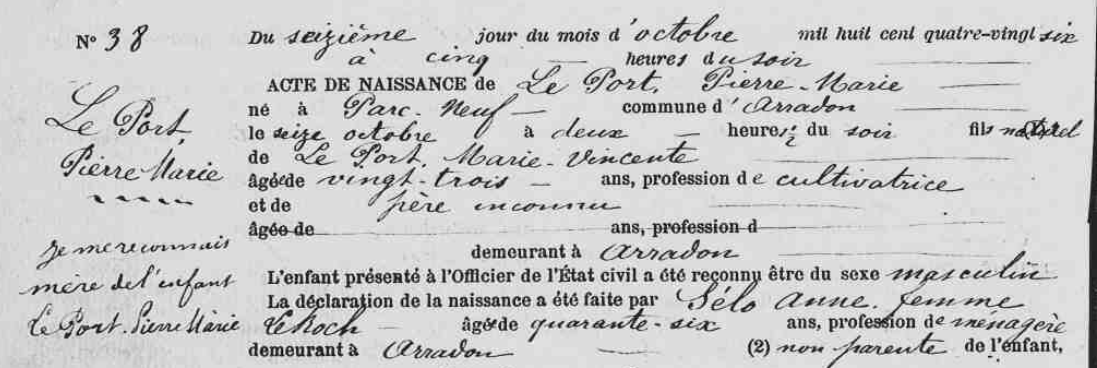 N° 38
Du seizième jour du mois d'octobre mil huit cent quatre-vingt six
à cinq heures du soir
ACTE DE NAISSANCE de Le Port, Pierre-Marie
né à Parc-Neuf commune d'Arradon
le seize octobre à deux heures ½ du soir fils naturel
de Le Port, Marie-Vincente
âgée de vingt-trois ans, profession de cultivatrice
et de père inconnu
âgée de ans, profession d
demeurant à Arradon
L'enfant présenté à l'Officier de l'État civil a été reconnu être du sexe masculin
La déclaration de la naissance a été faite par Sélo Anne, femme
Leroch âgée de quarante-six ans, profession de ménagère
demeurant à Arradon (2) non parente de l'enfant,
Le Port,
Pierre Marie
Je me reconnais
mère de l'enfant
Le Port Pierre Marie